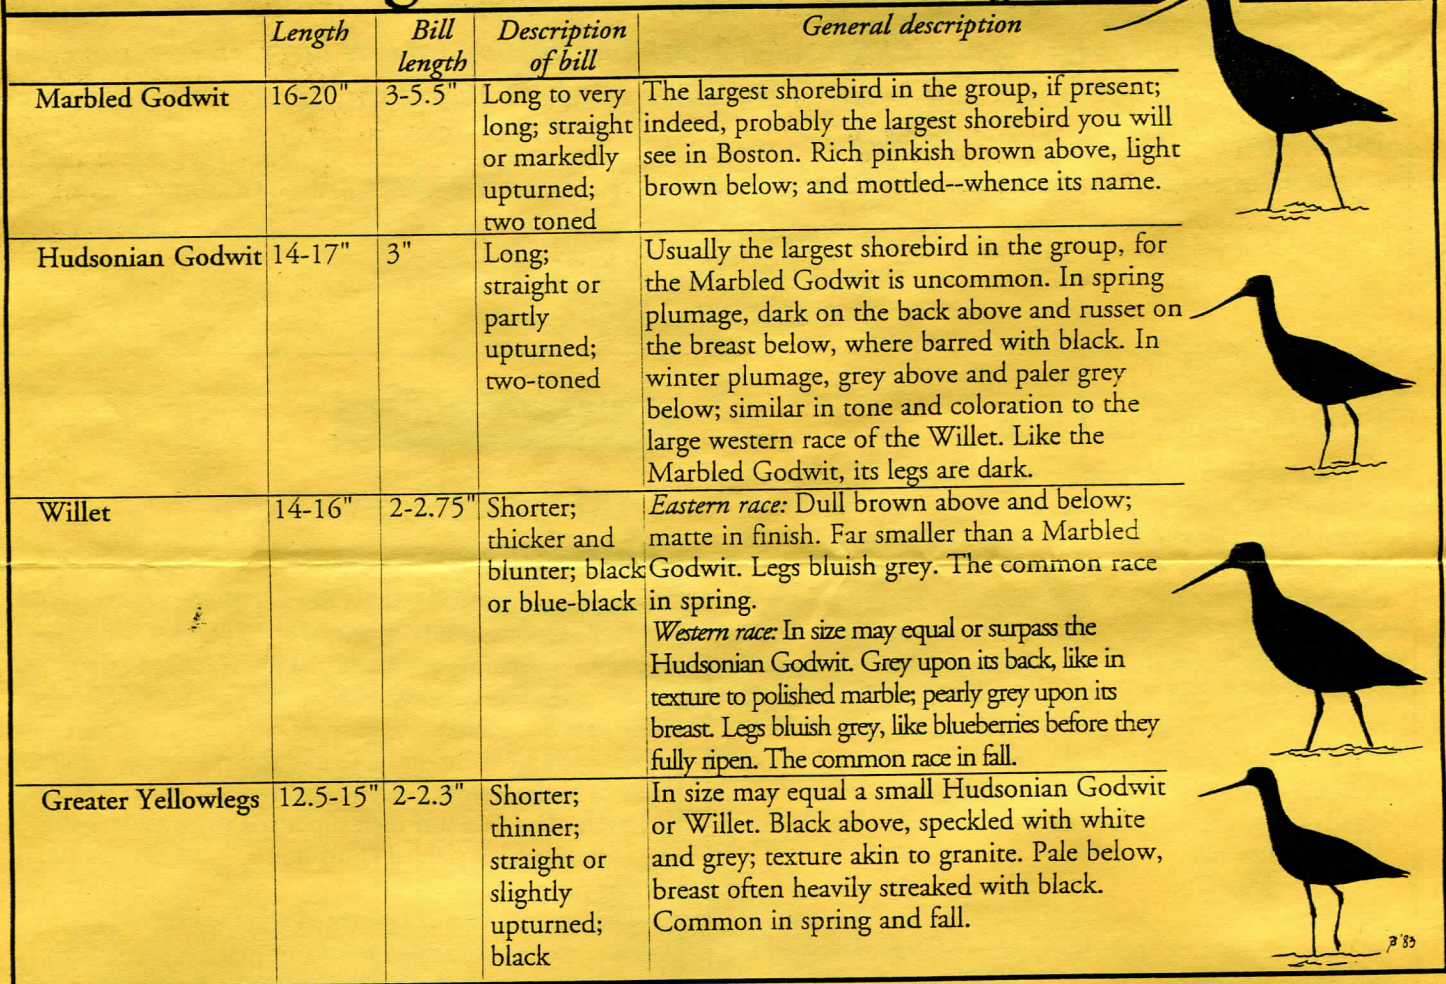 Length
Bill
length
Description
of bill
General description
Marbled Godwit
16-20"
3-5.5"
Long to very
long; straight
or markedly
upturned;
two toned
The largest shorebird in the group, if present;
indeed, probably the largest shorebird you will
see in Boston. Rich pinkish brown above, light
brown below; and mottled--whence its name.
Hudsonian Godwit
14-17"
3"
Long;
straight or
partly
upturned;
two-toned
Usually the largest shorebird in the group, for
the Marbled Godwit is uncommon. In spring
plumage, dark on the back above and russet on
the breast below, where barred with black. In
winter plumage, grey above and paler grey
below; similar in tone and coloration to the
large western race of the Willet. Like the
Marbled Godwit, its legs are dark.
Willet
14-16"
2-2.75"
Shorter;
thicker and
blunter; black
or blue-black
Eastern race: Dull brown above and below;
matte in finish. Far smaller than a Marbled
Godwit. Legs bluish grey. The common race
in spring.
Western race: In size may equal or surpass the
Hudsonian Godwit. Grey upon its back, like in
texture to polished marble; pearly grey upon its
breast. Legs bluish grey, like blueberries before they
fully ripen. The common race in fall.
Greater Yellowlegs
12.5-15"
2-2.3"
Shorter;
thinner;
straight or
slightly
upturned;
black
In size may equal a small Hudsonian Godwit
or Willet. Black above, speckled with white
and grey; texture akin to granite. Pale below,
breast often heavily streaked with black.
Common in spring and fall.
'83